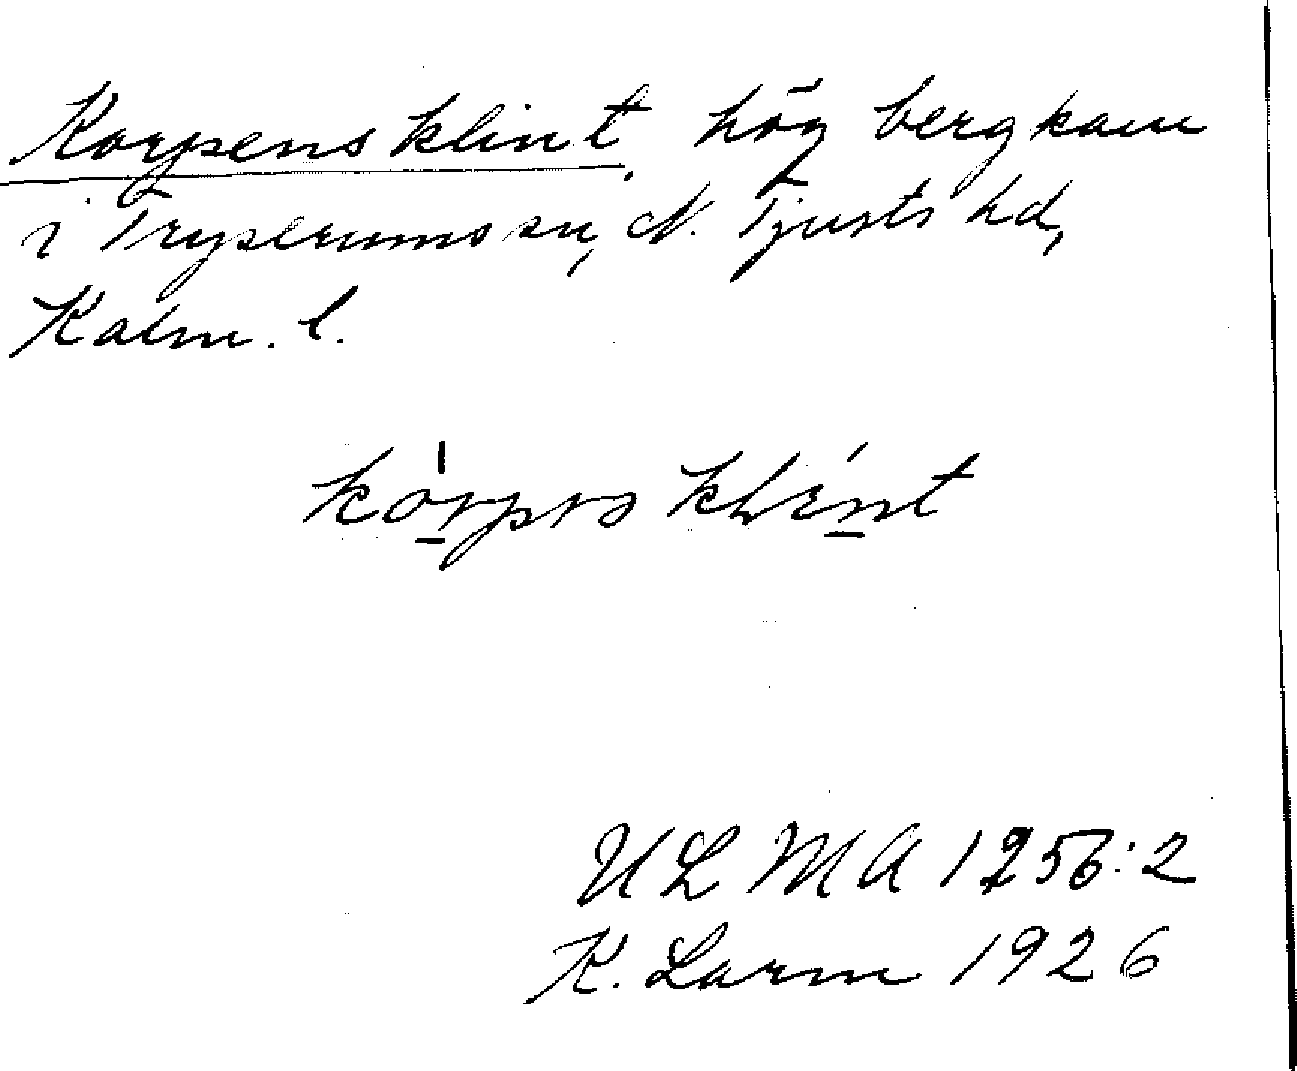 Korpens klint, hög bergkam
i Tryserums sn, N. Tjusts hd,
Kalm. l.
ULMA 1256:2
K. Larm 1926